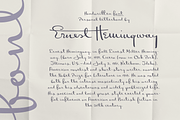 font
Handwritten font
Personal letterhead by
Ernest Hemingway
Ernest Hemingway, in full Ernest Miller Heming-
way (born July 21, 1899, Cicero [now in Oak Park],
Illinois, U.S.—died July 2, 1961, Ketchum, Idaho),
American novelist and short-story writer, awarded
the Nobel Prize for Literature in 1954. He was noted
both for the intense masculinity of his writing
and for his adventurous and widely publicized life.
His succinct and lucid prose style exerted a power-
ful influence on American and British fiction in
the 20th century.